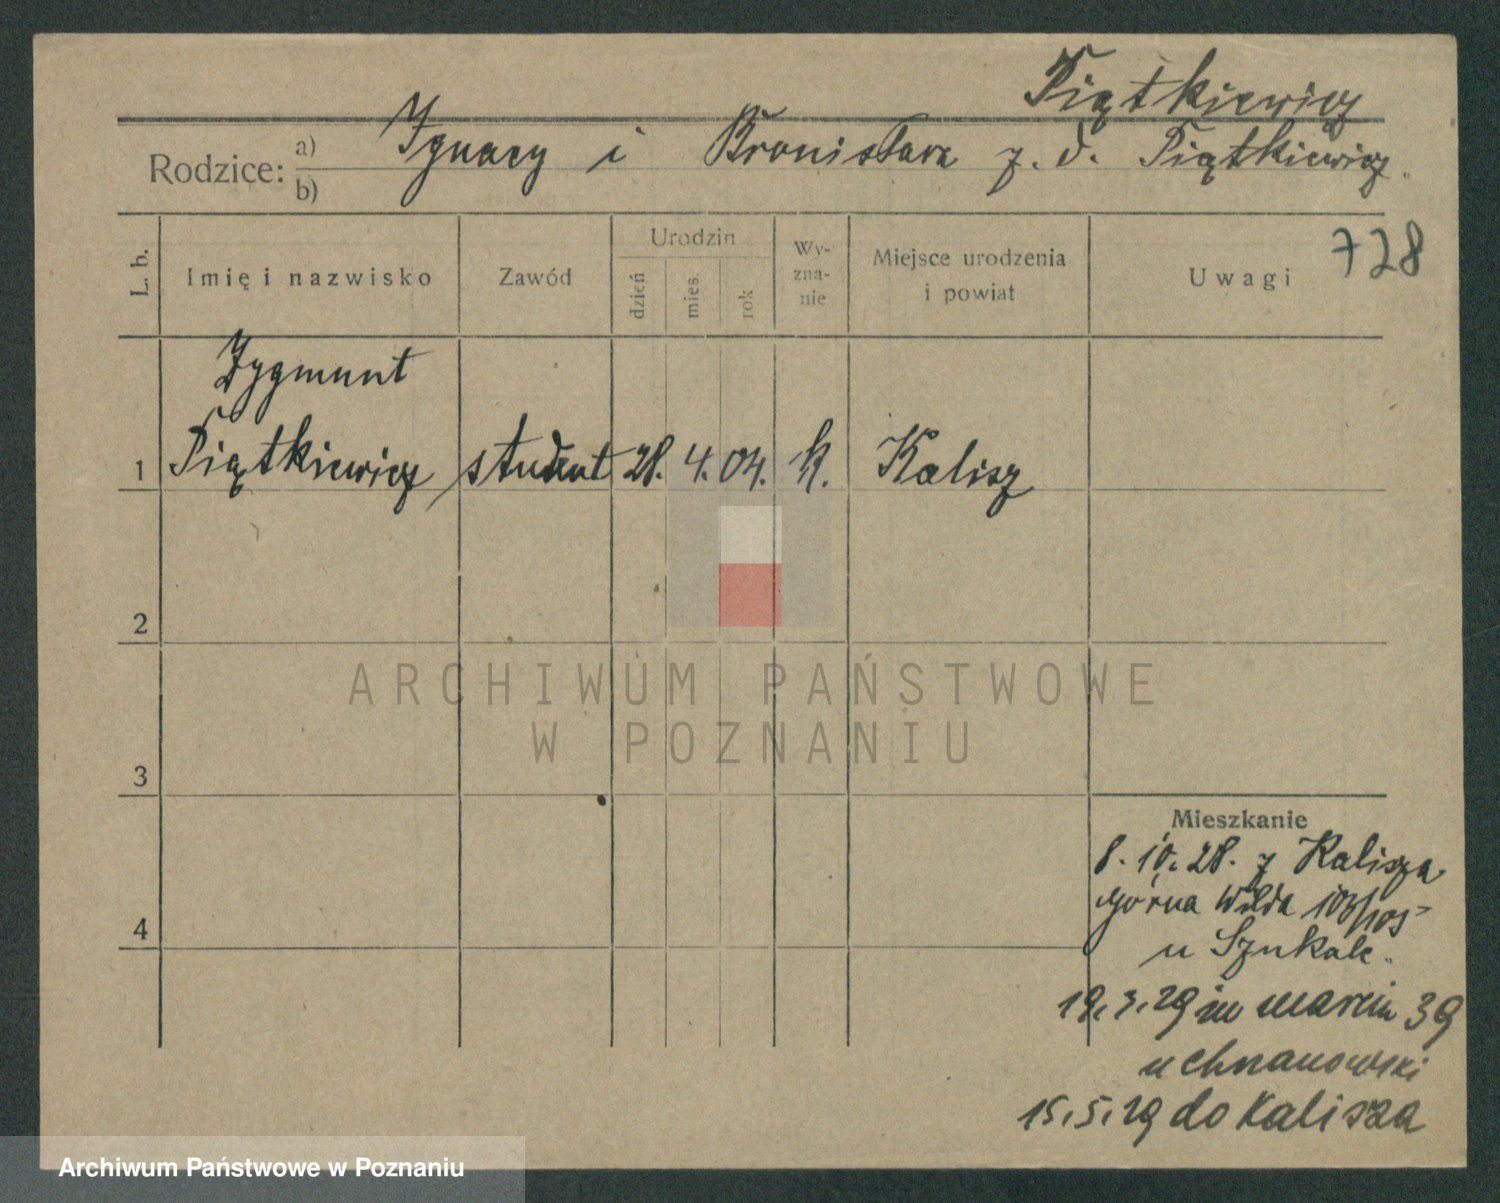 Piątkiewicz
Rodzice: a) Ignacy i Bronisława z. d. Piątkiewicz.
b)
L. b. Imię i nazwisko Zawód Urodzin dzień mies. rok Wyznanie Miejsce urodzenia i powiat Uwagi 728
Zygmunt
1 Piątkiewicz student 28. 4. 04. k. Kalisz
2
ARCHIWUM PAŃSTWOWE
W POZNANIU
3
Mieszkanie
8. 10. 28. z Kalisza
Górna Wilda 103/105
4
u Szukale.
19. 3. 29 marcin 39
u
15. 5. 29 do Kalisza
Archiwum Państwowe w Poznaniu